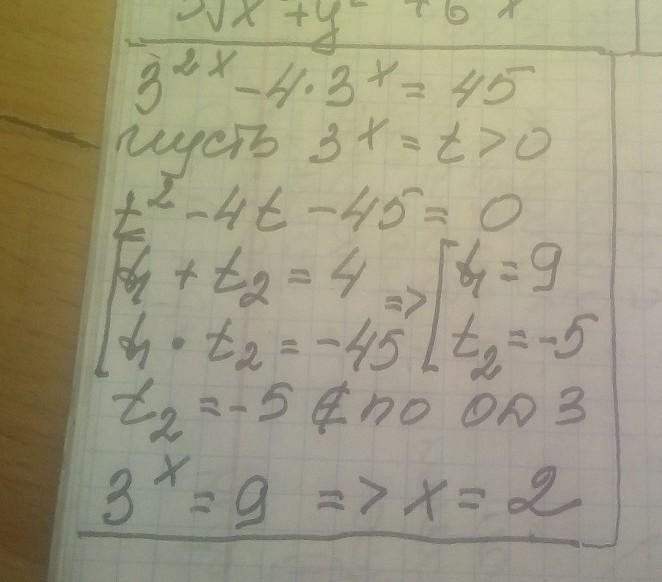 3^{2x} - 4·3^x = 45
пусть 3^x = t > 0
t^2 - 4t - 45 = 0
[ t_1 + t_2 = 4 => [ t_1 = 9
t_1 · t_2 = -45 t_2 = -5
t_2 = -5 ∉ по ОДЗ
3^x = 9 => x = 2